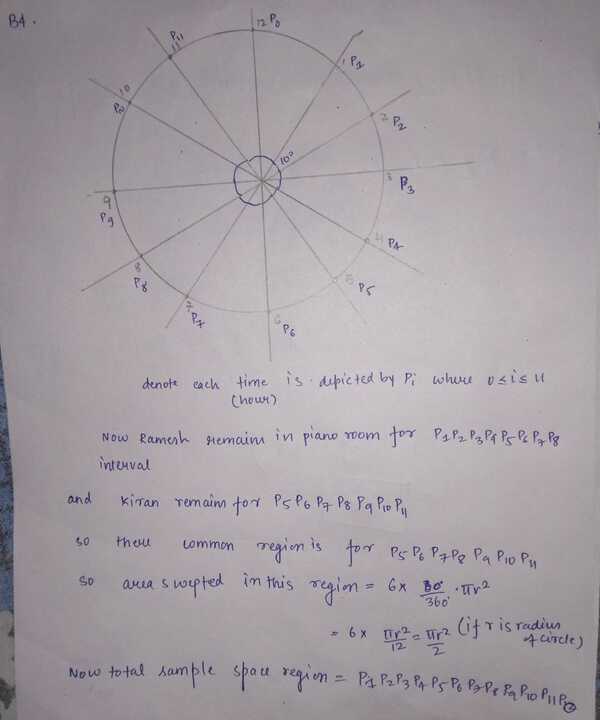 B4.
12 P0
P11
11
1 P1
10
P10
2 P2
10°
3 P3
9
P9
4 P4
8
P8
5 P5
7
P7
6
P6
denote each time is depicted by Pi where 0≤i≤11
(hour)
Now Ramesh remains in piano room for P1P2P3P4P5P6P7P8
interval
and Kiran remain for P5 P6 P7 P8 P9 P10 P11
so there common region is for P5 P6 P7 P8 P9 P10 P11
so area swepted in this region = 6× 30°/360° · πr²
= 6× πr²/12 = πr²/2 (if r is radius
of circle)
Now total sample space region = P1 P2P3 P4 P5 P6 P7P8 P9 P10 P11